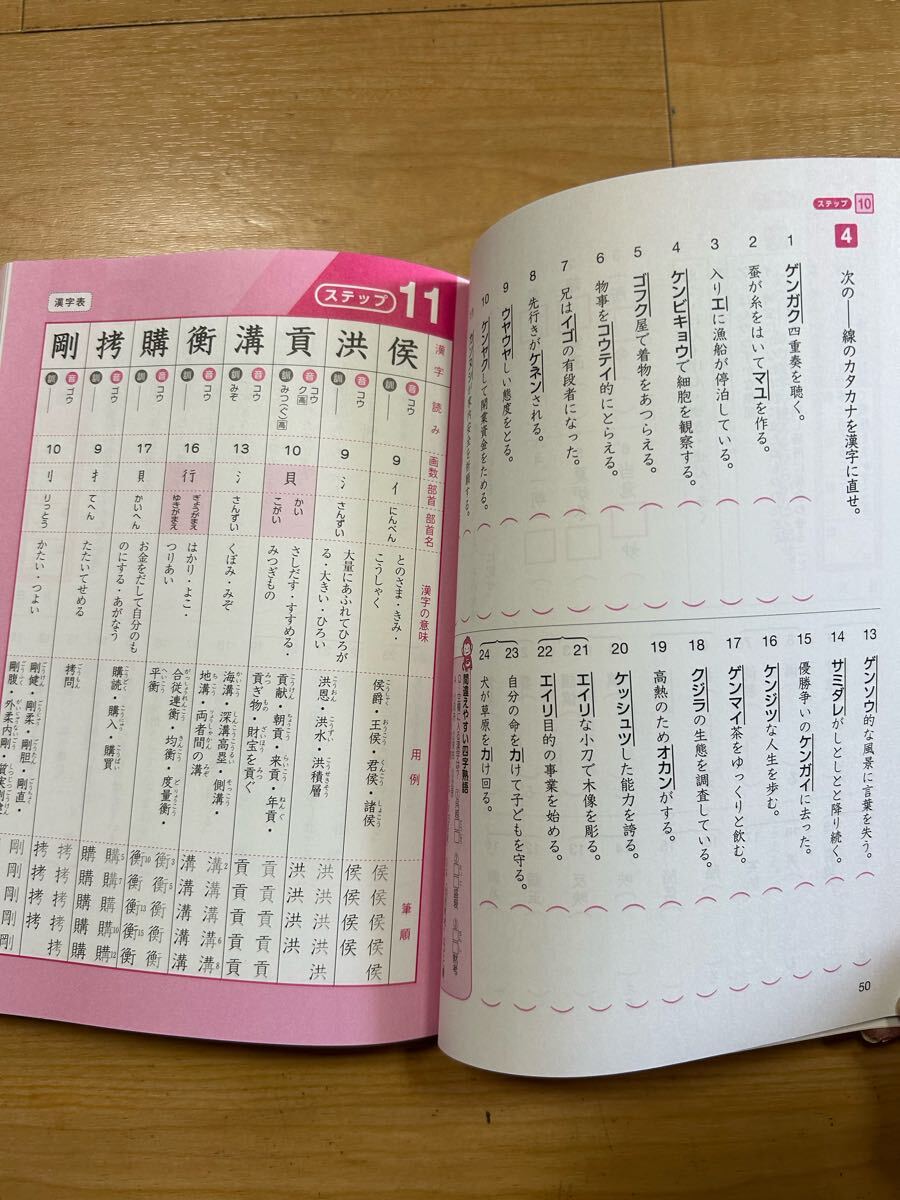 ステップ 10
4 次の――線のカタカナを漢字に直せ。
1 ゲンガク四重奏を聴く。
2 蚕が糸をはいてマユを作る。
3 入りエに漁船が停泊している。
4 ケンビキョウで細胞を観察する。
5 ゴフク屋で着物をあつらえる。
6 物事をコウテイ的にとらえる。
7 兄はイゴの有段者になった。
8 先行きがケネンされる。
9 ウヤウヤしい態度をとる。
10 ケンヤクして開業資金をためる。
家内安全を祈願する。
13 ゲンソウ的な風景に言葉を失う。
14 サミダレがしとしとと降り続く。
15 優勝争いのケンガイに去った。
16 ケンジツな人生を歩む。
17 ゲンマイ茶をゆっくりと飲む。
18 クジラの生態を調査している。
19 高熱のためオカンがする。
20 ケッシュツした能力を誇る。
21 エイリな小刀で木像を彫る。
22 エイリ目的の事業を始める。
23 自分の命をカけて子どもを守る。
24 犬が草原をカけ回る。
間違えやすい四字熟語
50
ステップ 11
漢字表
漢字 読み 画数 部首 部首名 漢字の意味 用例 筆順
侯 音 コウ 訓 ― 9 亻 にんべん とのさま・きみ・こうしゃく 侯爵・王侯・君侯・諸侯 侯侯侯侯侯侯侯
洪 音 コウ 訓 ― 9 氵 さんずい 大量にあふれてひろがる・大きい・ひろい 洪恩・洪水・洪積層 洪洪洪洪洪洪洪
貢 音 コウ ク高 訓 みつ(ぐ)高 10 貝 かい こがい さしだす・すすめる・みつぎもの 貢献・朝貢・来貢・年貢・貢ぎ物・財宝を貢ぐ 貢貢貢貢貢貢貢
溝 音 コウ 訓 みぞ 13 氵 さんずい くぼみ・みぞ 海溝・深溝高塁・側溝・地溝・両者間の溝 溝溝溝溝溝溝溝
衡 音 コウ 訓 ― 16 行 ぎょうがまえ ゆきがまえ はかり・よこ・つりあい 合従連衡・均衡・度量衡・平衡 衡衡衡衡衡衡衡
購 音 コウ 訓 ― 17 貝 かいへん お金をだして自分のものにする・あがなう 購読・購入・購買 購購購購購購購
拷 音 ゴウ 訓 ― 9 扌 てへん たたいてせめる 拷問 拷拷拷拷拷拷拷
剛 音 ゴウ 訓 ― 10 刂 りっとう かたい・つよい 剛健・剛柔・剛胆・剛直・剛腹・外柔内剛・質実剛健 剛剛剛剛